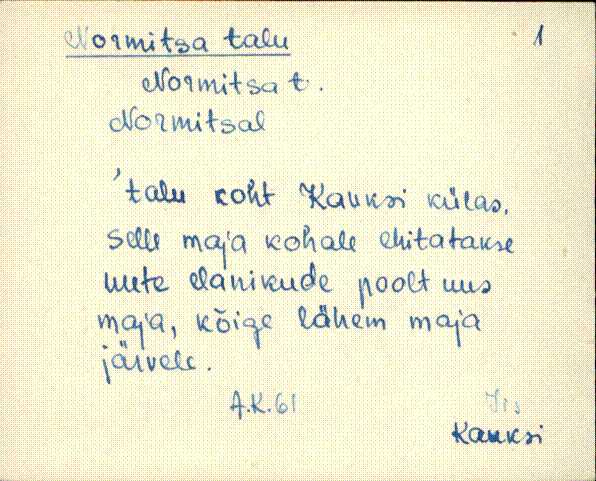 Normitsa talu 1
Normitsa t.
Normitsal
'talu koht Kauksi külas.
Selle maja kohale ehitatakse
uute elanikude poolt uus
maja, kõige lähem maja
järvele.
A.K. 61 Iis
Kauksi